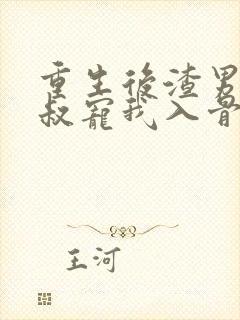 重生後渣男
叔寵我入骨
王河